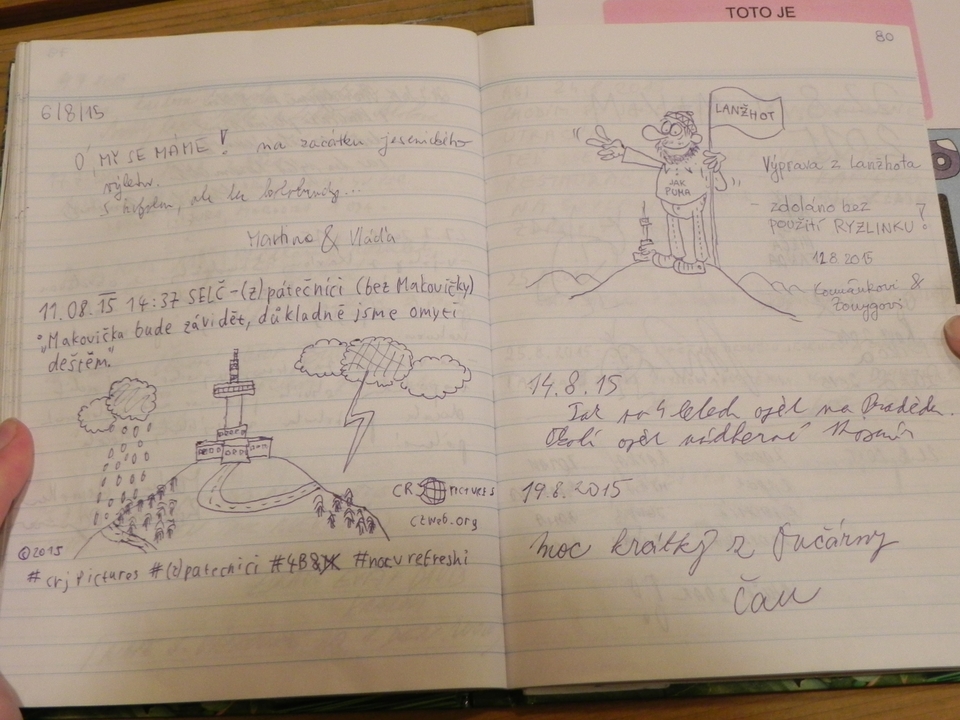 6/8/15
Ó, MY SE MÁME! na začátku jesenického
výletu.
ale
Martina & Vláďa
11.08.15 14:37 SELČ-(z)pátečníci (bez Makovičky)
"Makovička bude závidět, důkladně jsme omyti
deštěm."
CRJ PICTURES
ctweb.org
©2015
#crjPictures #(z)patecnici #4B #nocvrefreshi
TOTO JE
80
LANŽHOT
JAK
PUMA
Výprava z Lanžhota
- zdoláno bez
použití RYZLINKU!
12.8.2015
&
14.8.15
Tak po 4 letech opět na Pradědu.
Okolí opět nádherné
19.8.2015
moc krátký z
Čau